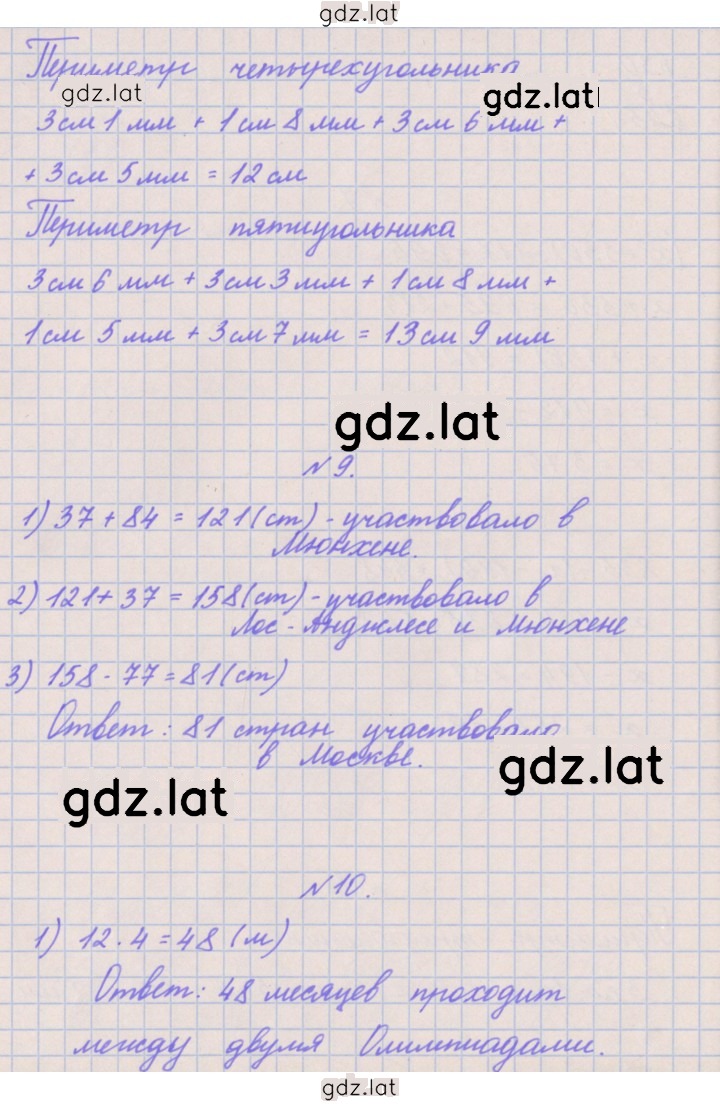 gdz.lat
Периметр четырехугольника
gdz.lat
gdz.lat
3 см 1 мм + 1 см 8 мм + 3 см 6 мм +
+ 3 см 5 мм = 12 см
Периметр пятиугольника
3 см 6 мм + 3 см 3 мм + 1 см 8 мм +
1 см 5 мм + 3 см 7 мм = 13 см 9 мм
gdz.lat
№ 9.
1) 37 + 84 = 121 (ст) - участвовало в
Мюнхене.
2) 121 + 37 = 158 (ст) - участвовало в
Лос-Анджлесе и Мюнхене
3) 158 - 77 = 81 (ст)
Ответ: 81 стран участвовало
в Москве.
gdz.lat
gdz.lat
№ 10.
1) 12 . 4 = 48 (м)
Ответ: 48 месяцев проходит
между двумя Олимпиадами.
gdz.lat